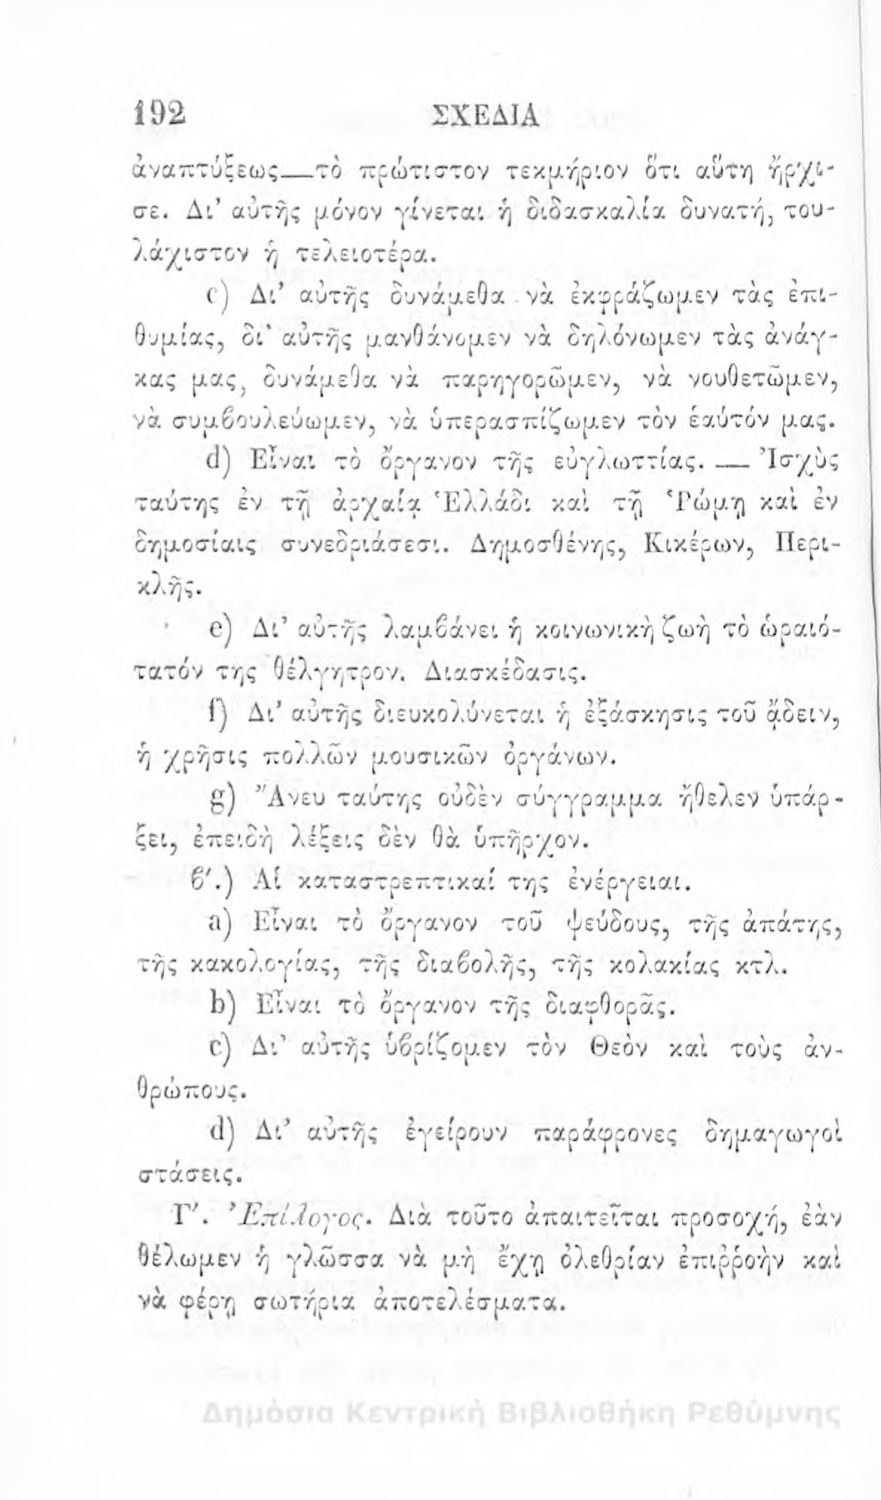 192 ΣΧΕΔΙΑ
ἀναπτύξεως—τὸ πρώτιστον τεκμήριον ὅτι αὕτη ἤρχι-
σε. Δι’ αὐτῆς μόνον γίνεται ἡ διδασκαλία δυνατή, του-
λάχιστον ἡ τελειοτέρα.
c) Δι’ αὐτῆς δυνάμεθα νὰ ἐκφράζωμεν τὰς ἐπι-
θυμίας, δι’ αὐτῆς μανθάνομεν νὰ δηλόνωμεν τὰς ἀνάγ-
κας μας, δυνάμεθα νὰ παρηγορῶμεν, νὰ νουθετῶμεν,
νὰ συμβουλεύωμεν, νὰ ὑπερασπίζωμεν τὸν ἑαύτόν μας.
d) Εἶναι τὸ ὄργανον τῆς εὐγλωττίας. — Ἰσχὺς
ταύτης ἐν τῇ ἀρχαίᾳ Ἑλλάδι καὶ τῇ Ῥώμῃ καὶ ἐν
δημοσίαις συνεδριάσεσι. Δημοσθένης, Κικέρων, Περι-
κλῆς.
e) Δι’ αὐτῆς λαμβάνει ἡ κοινωνικὴ ζωὴ τὸ ὡραιό-
τατόν της θέλγητρον. Διασκέδασις.
f) Δι’ αὐτῆς διευκολύνεται ἡ ἐξάσκησις τοῦ ᾄδειν,
ἡ χρῆσις πολλῶν μουσικῶν ὀργάνων.
g) Ἄνευ ταύτης οὐδὲν σύγγραμμα ἤθελεν ὑπάρ-
ξει, ἐπειδὴ λέξεις δὲν θὰ ὑπῆρχον.
β'.) Αἱ καταστρεπτικαί της ἐνέργειαι.
a) Εἶναι τὸ ὄργανον τοῦ ψεύδους, τῆς ἀπάτης,
τῆς κακολογίας, τῆς διαβολῆς, τῆς κολακίας κτλ.
b) Εἶναι τὸ ὄργανον τῆς διαφθορᾶς.
c) Δι’ αὐτῆς ὑβρίζομεν τὸν Θεὸν καὶ τοὺς ἀν-
θρώπους.
d) Δι’ αὐτῆς ἐγείρουν παράφρονες δημαγωγοὶ
στάσεις.
Γ'. Ἐπίλογος. Διὰ τοῦτο ἀπαιτεῖται προσοχή, ἐὰν
θέλωμεν ἡ γλῶσσα νὰ μὴ ἔχῃ ὀλεθρίαν ἐπιῤῥοὴν καὶ
νὰ φέρῃ σωτήρια ἀποτελέσματα.
Δημόσια Κεντρική Βιβλιοθήκη Ρεθύμνης